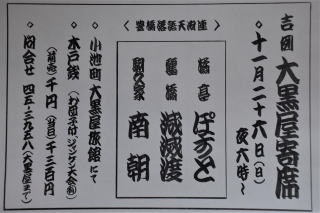 吉例 大黒屋寄席
◇ 十一月二十六日(日) 夜六時〜
〈豊橋落語天狗連〉
橋亭 ぽすと
減滅渡
南朝
◇ 小池町 大黒屋旅館にて
◇ 木戸銭(お団子付、ジャンケン大会有)
(前売)千円 (当日)千三百円
◇ 問合せ 四五-三九五八(大黒屋まで)